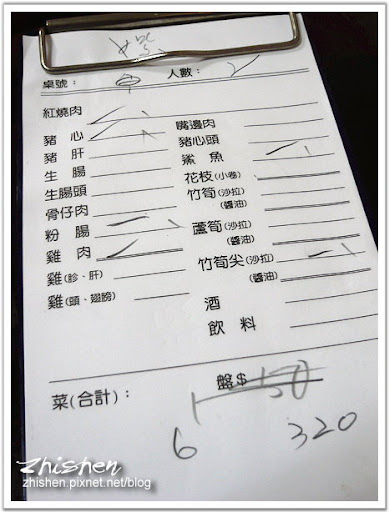 桌號： 人數：2
紅燒肉
豬心
豬肝
生腸
生腸頭
骨仔肉
粉腸
雞肉
雞(胗、肝)
雞(頭、翅膀)
嘴邊肉
豬心頭
鯊魚
花枝(小卷)
竹筍(沙拉)
(醬油)
蘆筍(沙拉)
(醬油)
竹筍尖(沙拉)
(醬油)
酒
飲料
盤$150
菜(合計)：
6 320
zhishen
zhishen.pixnet.net/blog